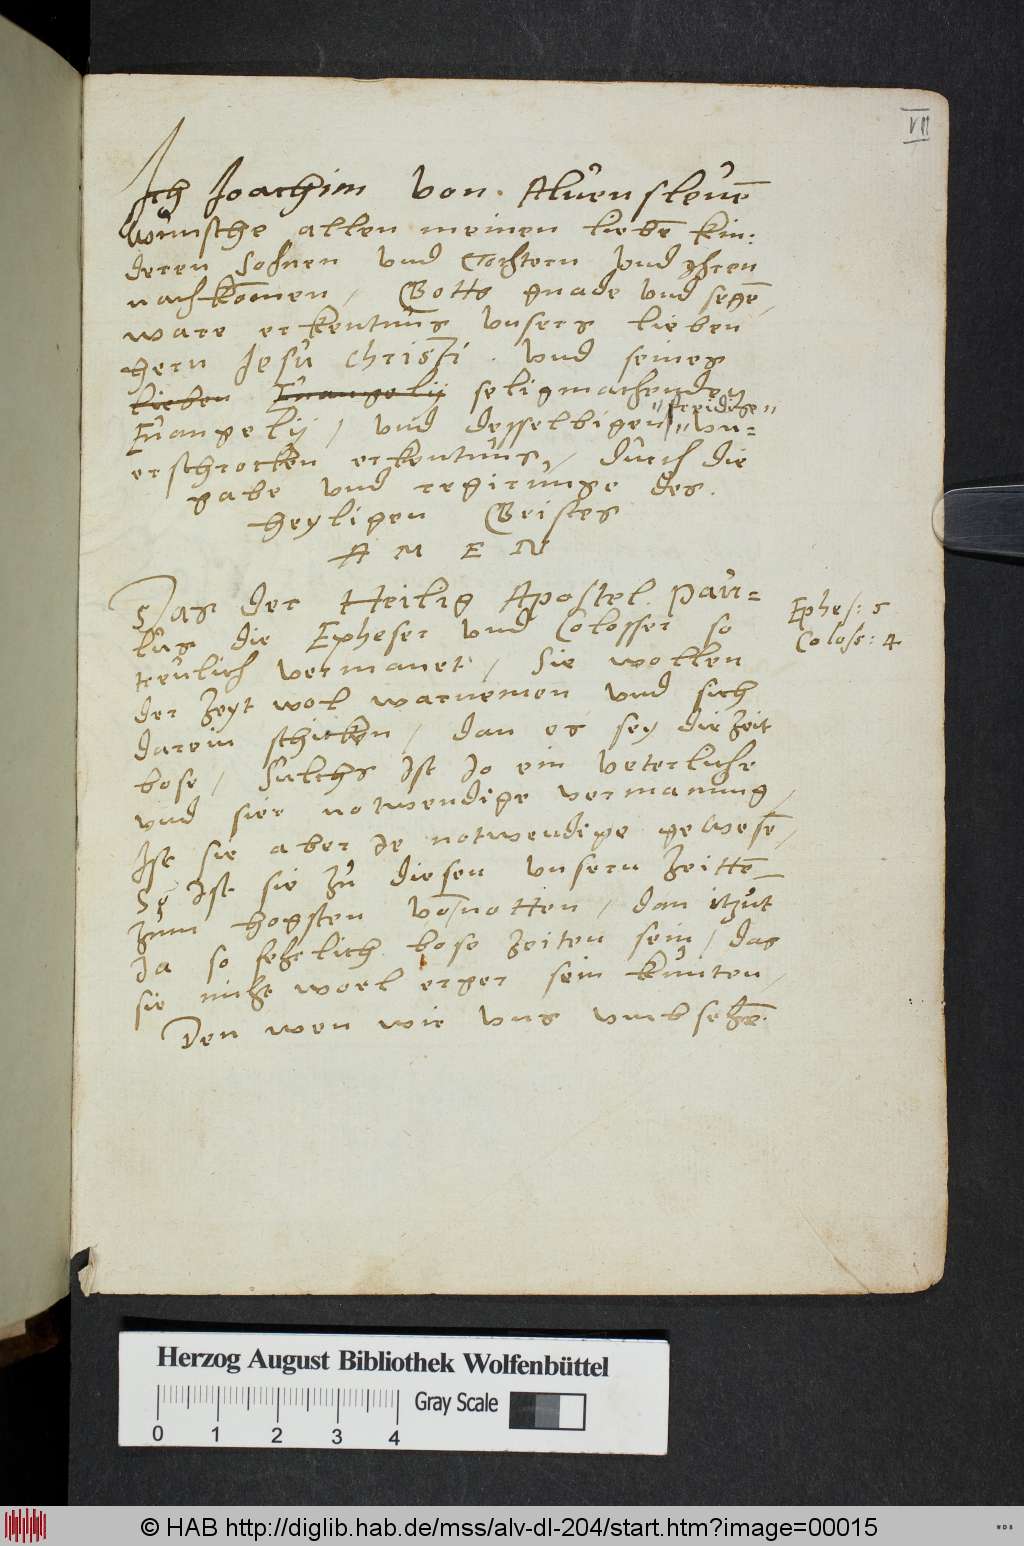 VII
Ich Joachim von Aluensleuē
wunsche allen meinen liebē kin:
deren Sohnen vnd Tochtern vnd yhren
nachkōmen / Gotts gnade vnd segē,
ware erkentnus vnsers lieben
hern Jesu Christi . vnd seines
lieben Euangelij seligmachenden
Euangelij / vnd desselbigen "freidige" "vn=
erschrocken erkentnus, durch die
gabe vnd regirunge des.
heyligen Geistes
A M E N
Das der Heilig Apostel Pau=
lus die Epheser vnd Colosser so
treulich vermanet, Sie wollen
der Zeyt wol warnemen vnd sich
darein schicken, dan es sey die Zeit
bose, Sulchs Ist Jo ein veterliche
vnd sier notwendige vermanung,
Ist sie aber Je notwendige gewesē,
So Ist sie Zu diesen vnsern Zeittē
Zum hogsten vō notten, dan itzut
Ja so fehrlich bose Zeiten sein, das
sie nicht woel erger sein kunten,
Den wen wir vns vmbsehē.
Ephes: 5
Coloss: 4
Herzog August Bibliothek Wolfenbüttel
Gray Scale
0 1 2 3 4
© HAB http://diglib.hab.de/mss/alv-dl-204/start.htm?image=00015